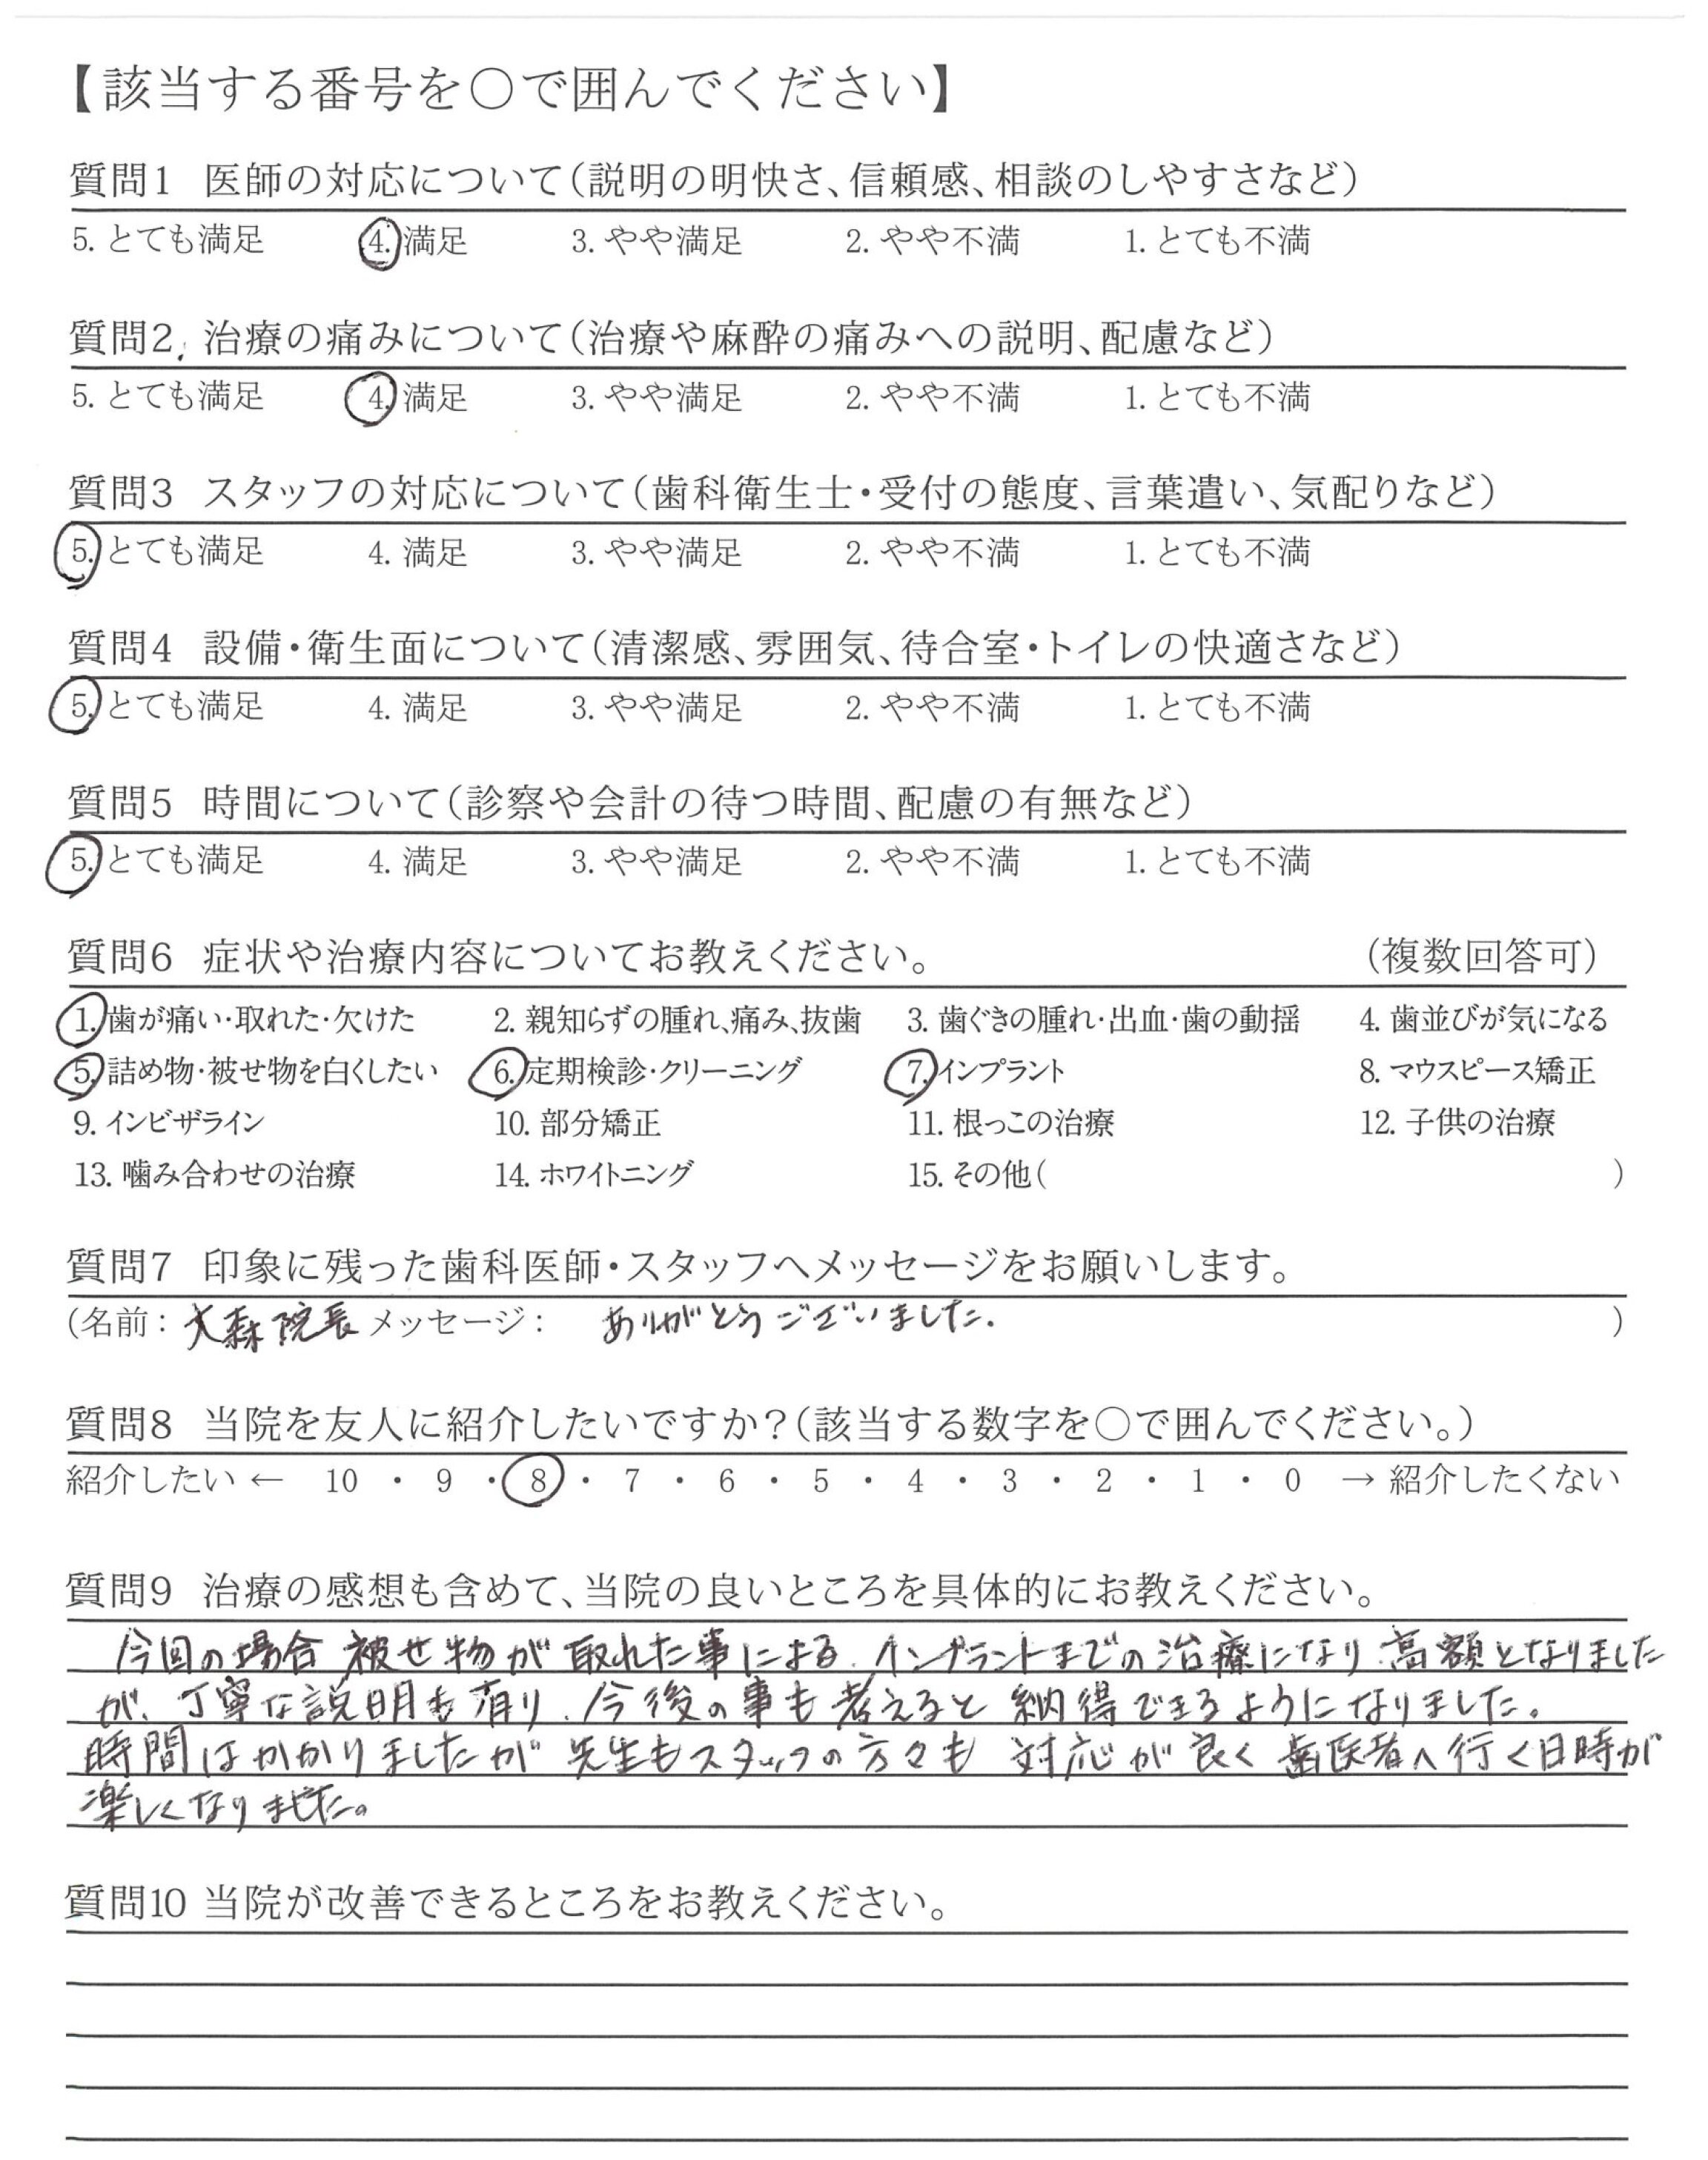 【該当する番号を○で囲んでください】
質問1 医師の対応について(説明の明快さ、信頼感、相談のしやすさなど)
5. とても満足 4. 満足 3. やや満足 2. やや不満 1. とても不満
質問2 治療の痛みについて(治療や麻酔の痛みへの説明、配慮など)
5. とても満足 4. 満足 3. やや満足 2. やや不満 1. とても不満
質問3 スタッフの対応について(歯科衛生士・受付の態度、言葉遣い、気配りなど)
5. とても満足 4. 満足 3. やや満足 2. やや不満 1. とても不満
質問4 設備・衛生面について(清潔感、雰囲気、待合室・トイレの快適さなど)
5. とても満足 4. 満足 3. やや満足 2. やや不満 1. とても不満
質問5 時間について(診察や会計の待つ時間、配慮の有無など)
5. とても満足 4. 満足 3. やや満足 2. やや不満 1. とても不満
質問6 症状や治療内容についてお教えください。 (複数回答可)
1. 歯が痛い・取れた・欠けた 2. 親知らずの腫れ、痛み、抜歯 3. 歯ぐきの腫れ・出血・歯の動揺 4. 歯並びが気になる
5. 詰め物・被せ物を白くしたい 6. 定期検診・クリーニング 7. インプラント 8. マウスピース矯正
9. インビザライン 10. 部分矯正 11. 根っこの治療 12. 子供の治療
13. 噛み合わせの治療 14. ホワイトニング 15. その他( )
質問7 印象に残った歯科医師・スタッフへメッセージをお願いします。
(名前: 大森院長 メッセージ: ありがとうございました. )
質問8 当院を友人に紹介したいですか?(該当する数字を○で囲んでください。)
紹介したい ← 10 ・ 9 ・ 8 ・ 7 ・ 6 ・ 5 ・ 4 ・ 3 ・ 2 ・ 1 ・ 0 → 紹介したくない
質問9 治療の感想も含めて、当院の良いところを具体的にお教えください。
今回の場合 被せ物が取れた事による. インプラントまでの治療になり 高額となりました
が、丁寧な説明も有り. 今後の事も考えると 納得できるようになりました。
時間はかかりましたが 先生もスタッフの方々も 対応が良く 歯医者へ行く日時が
楽しくなりました。
質問10 当院が改善できるところをお教えください。